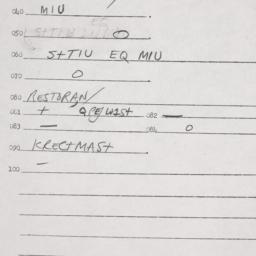 040 MIU
050 O
060 S+TIU EQ MIU
070 O
080 RESTORAN/
081 + OPE/WIS+ 082 —
083 — 084 O
090 KREC+MAS+
100 —